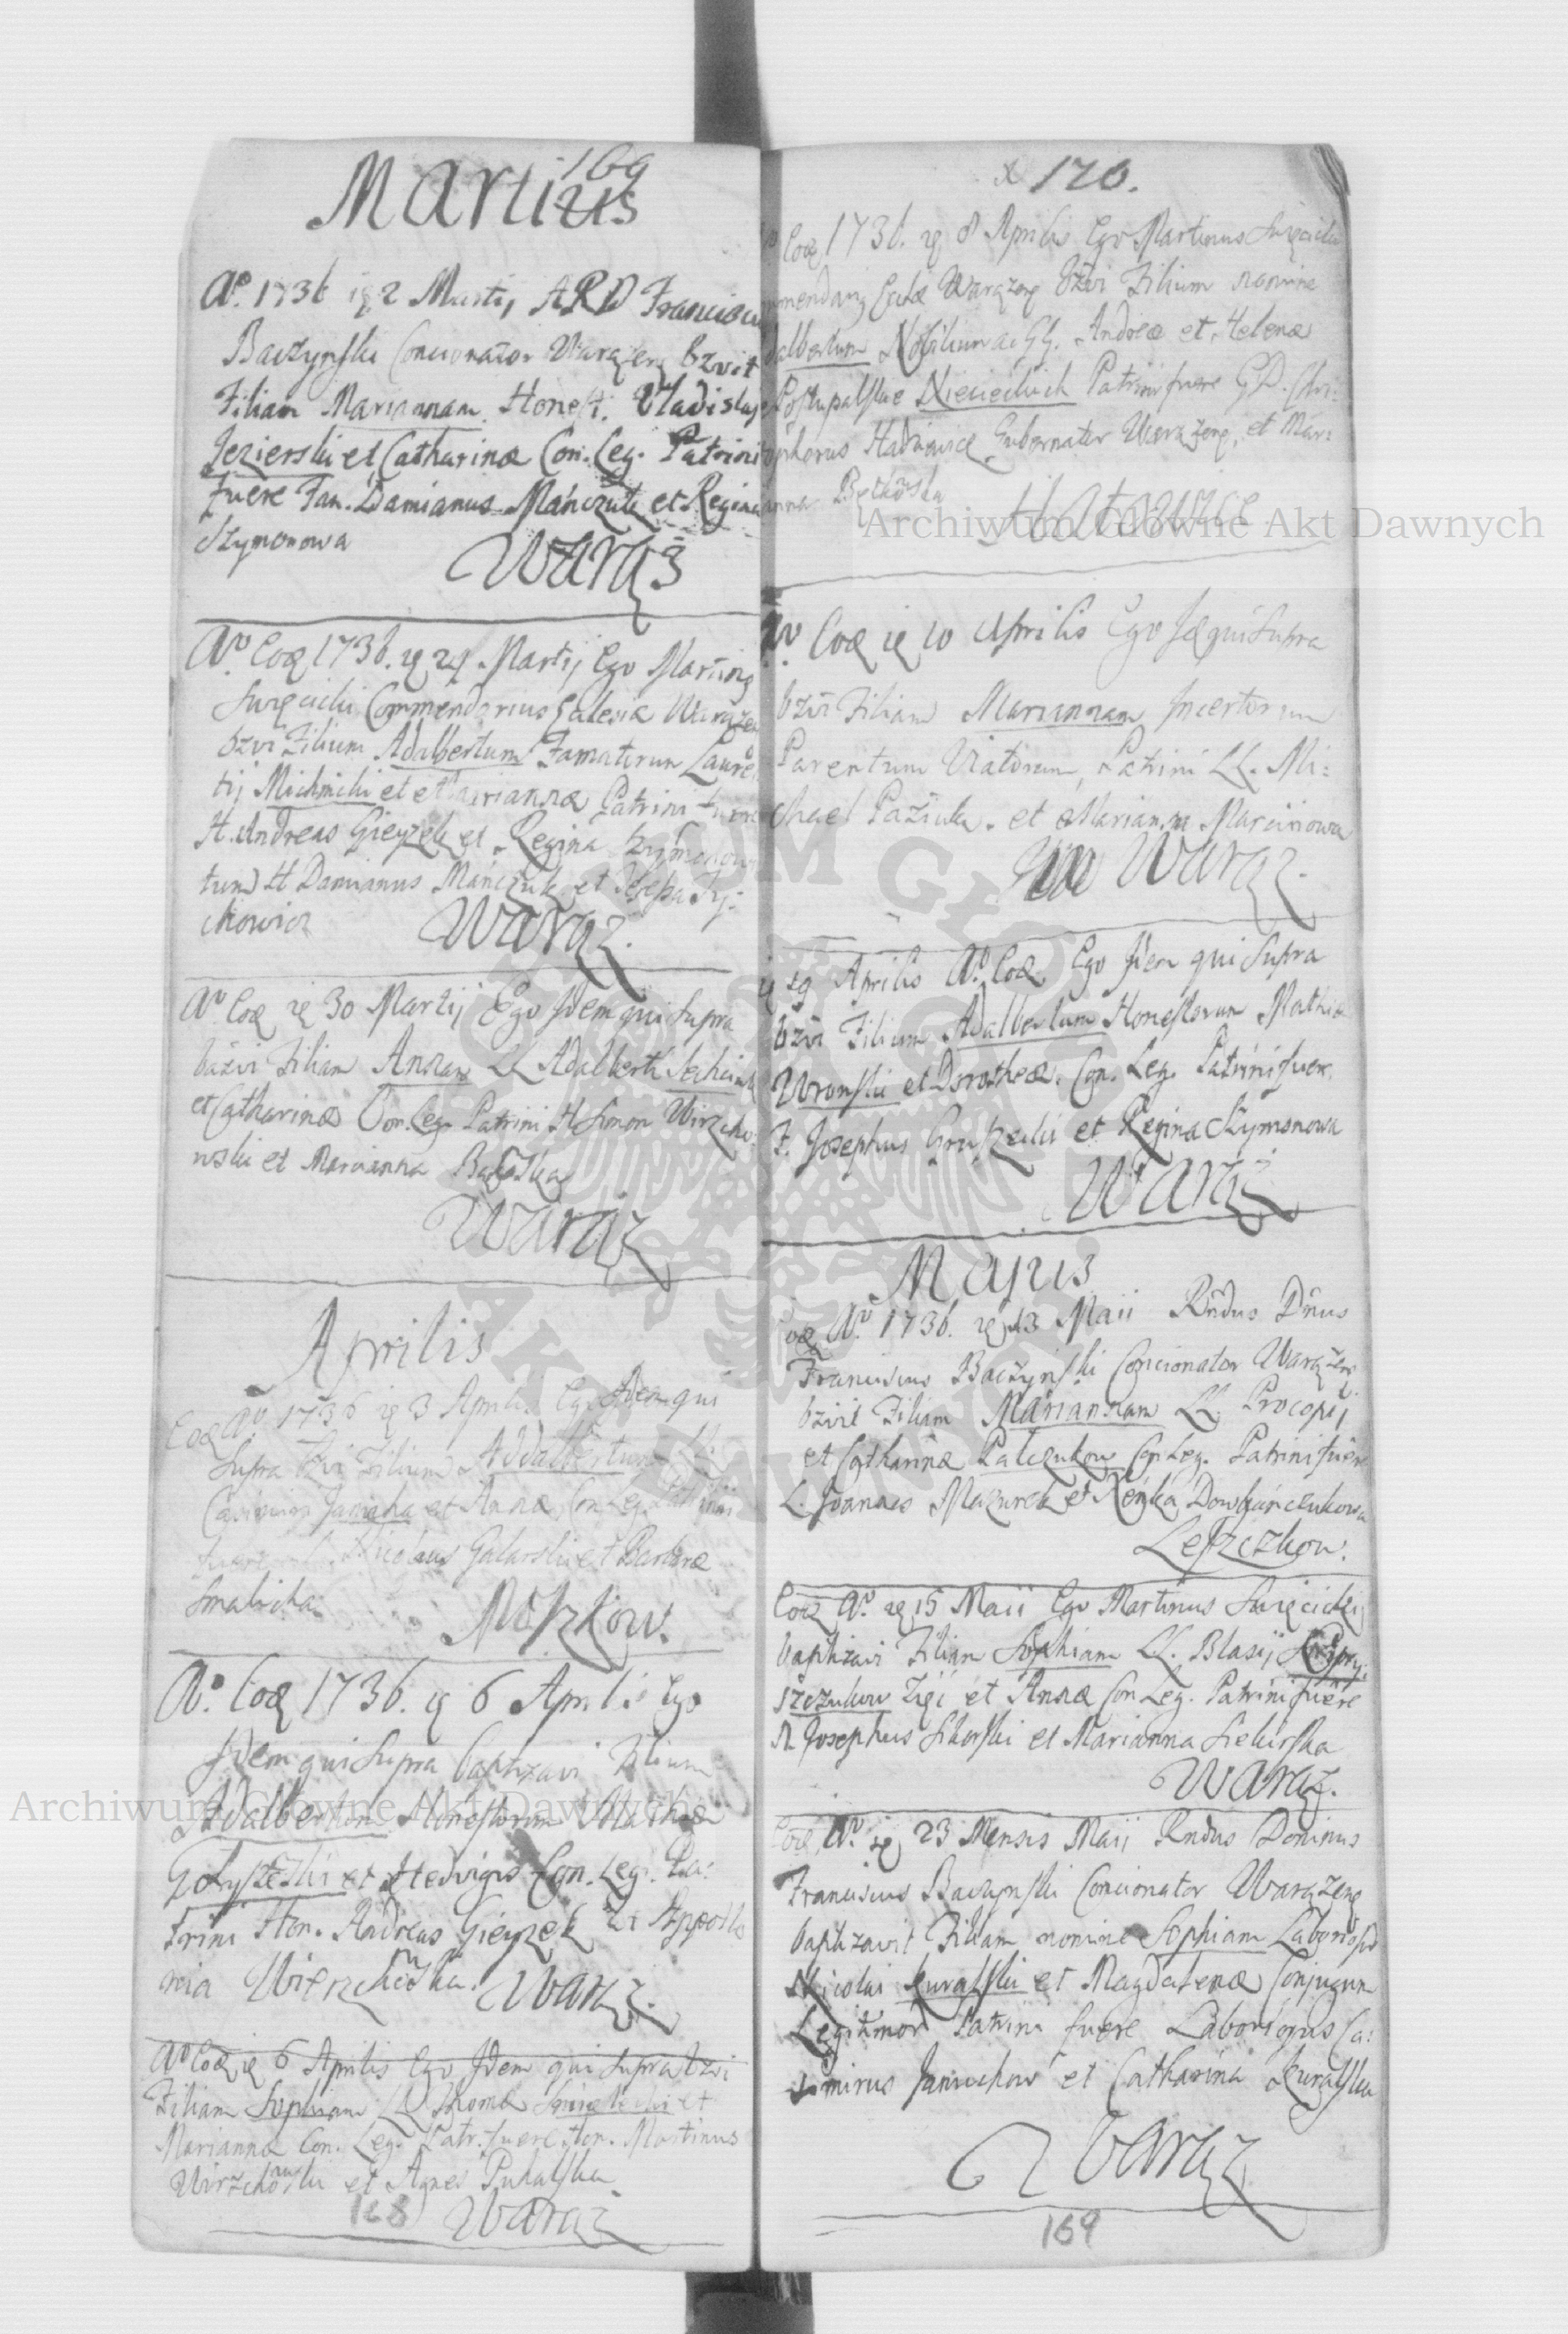 169
Martius
Aº. 1736 ię 2 Martij ARD Franciscu
Baczynski Concionator Warązen bzvit
Filiam Mariannam. Honest. Vladislaj
Jezierski et Catharinæ Con. Leg. Patrini
fuere Fam. Damianus Mańczuk et Regina
Szymonowa
Warąż
Aº. Eoq 1736. ię 24 Martij Ego Martinq
Swięcicki Commendarius Eclesiæ Warązen
bzvi Filium Adalbertum Famatorum Lauren
tij Michnicki et Mariannæ Patrini fuere
H. Andreas Gieyzek et Regina
tum H Damianus Mańczuk et
chowicz
Warąz.
Aº Eoq ię 30 Martij Ego Idem qui supra
bazvi Filiam Annam LL Adalberti
et Catharinæ Con. Leg. Patrini H Simon Wirzcho
wski et Marianna
Warąz
Aprilis
Eoq Aº. 1736 ię 3 Aprilis Ego Idem qui
supra bzvi Filium Addalbertum LL
Casimiri Janicha et Annæ Con Leg. Patrini
fuere Nicolaus Galarski et Barbaræ
Smalicha
Moszkow.
Aº. Eoq 1736. ię 6 Aprilis Ego
Idem qui supra baptizavi Filium
Adalbertum Honestorum Mathiæ
et Hedvigis Con. Leg. Pa:
trini Hon. Andreas Gieyzek et Appollo
nia Wierzchoska. Warąz.
Aº Eoq ię 6 Aprilis Ego Idem qui supra bzvi
Filiam Sophiam LL Thomæ et
Mariannæ Con. Leg. Patr. fuere Hon. Martinus
Wirzchowski et Agnes Puhalska
168 Warąz
170.
Eoq 1736. ię 8 Aprilis Ego Martinus Swięcicki
mmendariq Eccłæ Warązenę bzvi Filium nomine
dalbertum Nobilium ac GG. Andreæ et Helenæ
Postupalskie Niecieckich Patrini fuere GD. Chri:
ophorus Hadziewicz Gubernator Warązenę, et Mari:
anna
Aº Eoq ię 10 Aprilis Ego Idę qui supra
bzvi Filiam Mariannam Incertorum
Parentum Viatorum, Patrini LL. Mi:
chael Paziuk. et Marianna Marcinowa
Warąz.
ię 29 Aprilis Aº. Eoq. Ego Idem qui supra
bzvi Filium Adalbertum Honestorum Mathiæ
Wronski et Dorotheæ. Con. Leg. Patrini fuere.
F. Josephus Gruszecki et Regina Szymonowa
Warąż
Majus
Eoq Aº 1736. ię 13 Maii Rndus Dnus
Franciscus Baczynski Concionator Warązens
bzvit Filiam Mariannam LL. Procopij
et Catharinæ Palczukow Con Leg. Patrini fuere
L. Joannes Mazurek et Reńka Dowhańczukowa
Leszczkow.
Eoq Aº. ię 15 Maii Ego Martinus Swięcicki
baptizavi Filiam Sophiam LL. Blasij
et Annæ Con Leg. Patrini fuere
N Josephus Sikorski et Marianna Siekirska
Warąz.
Eoq Aº. ię 23 Mensis Maii Rndus Dominus
Franciscus Baczynski Concionator Warązenę
baptizavit Filiam nomine Sophiam
Nicolai Kuralski et Magdalenæ Conjugum
Legitimor Patrini fuere Laboriosus Ca:
simirus Januchow et Catharina Kuralska
Warąz
169
Archiwum Główne Akt Dawnych
Archiwum Główne Akt Dawnych